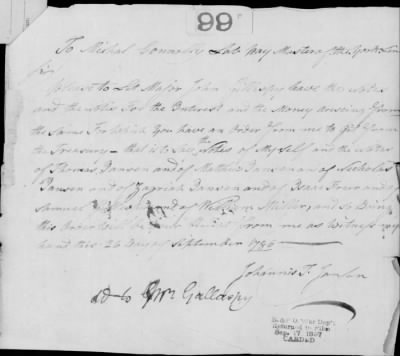 99
To Mishal Connolly Late Pay Master of the York Line
Sir
please to Let Major John Gillispy have the Notes
and the Notes For the Interest and the Money arising from
the Same For Which You have an Order from me to Get from
the Treasury - that is to Say the Notes of My Self and the Notes
of Thomas Jansen and of Matthew Jansen and of Nicholas
Jansen and of Zagriah Jansen and of
Samuel and of William Miller and So Doing
this Order Will be Your from me as Witness my
hand this 26 Day of September 1786
Johannis T. Jansen
Gallaspy
Returned to Files
Sep. 17 1897
CARDED